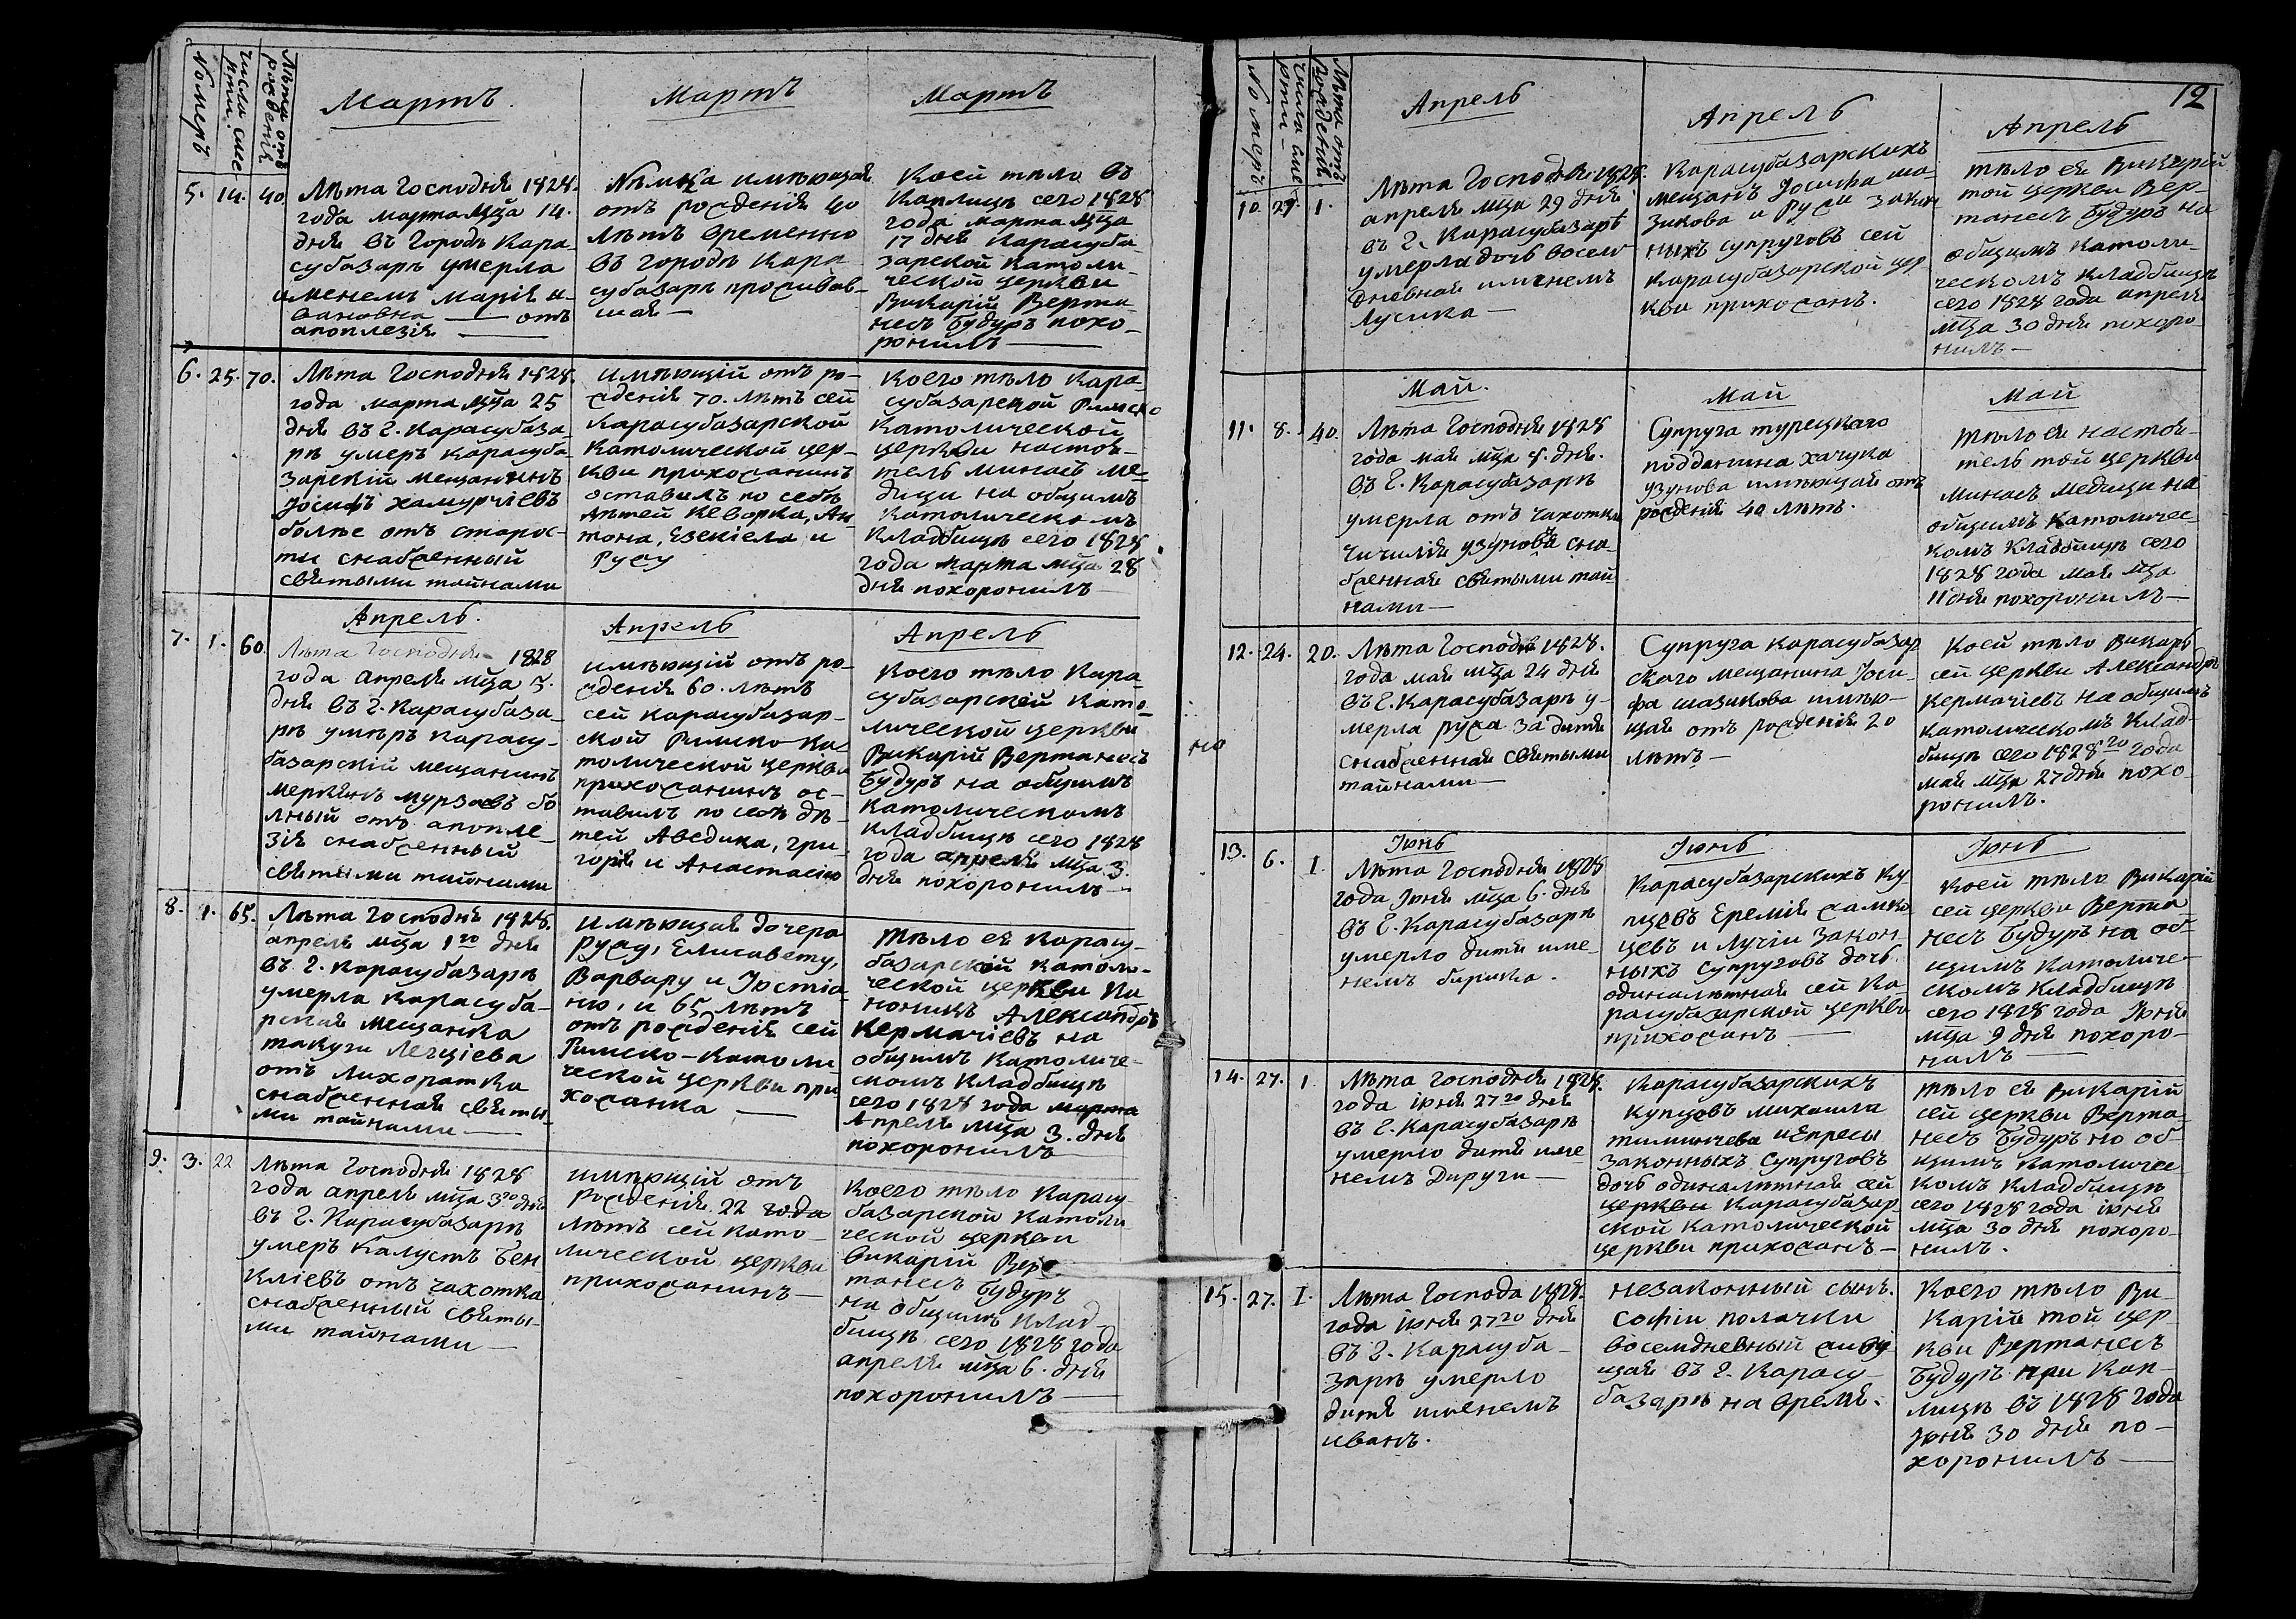 Номеръ
Числа смерти.
Лѣта отъ рожденія
Мартъ.
Мартъ
Мартъ
5. 14. 40.
Лѣта Господня 1828.
года марта мца 14.
дня въ городѣ Кара-
субазарѣ умерла
именемъ Марія И-
вановна — отъ
апоплезія —
Нѣмка имѣющая
отъ рожденія 40
лѣтъ временно
въ городѣ Кара
субазарѣ прожив-
шая —
Коей тѣло въ
Каплицѣ сего 1828
года марта мца
17 дня Карасуба
зарской католи-
ческой церкви
Викарій Верта
несъ Будуръ похо-
ронилъ —
6. 25. 70.
Лѣта Господня 1828.
года марта мца 25
дня въ г. Карасубаза-
рѣ умеръ Карасуба-
зарскій мещанинъ
Іосифъ Хамурчіевъ
болѣе отъ старос-
ти снабженный
святыми тайнами
имѣющій отъ ро-
жденія 70. лѣтъ сей
Карасубазарской
Католической цер-
кви прихожанинъ
оставилъ по себѣ
дѣтей Кеворка, Ан
тона, Езекіела и
Русу
Коего тѣло Кара-
субазарской Римско
Католической
церкви настоя-
тель Минасъ Ме-
дици на общимъ
Католическомъ
Кладбищѣ сего 1828
года марта мца 28
дня похоронилъ
Апрель.
Апрель
Апрель
7. 1. 60.
Лѣта Господня 1828
года апреля мца
дня въ г. Карасубаза-
рѣ умѣръ Карасу-
базарскій мещанинъ
мурзаевъ бо
лный отъ апопле-
зія снабженный
святыми тайнами
имѣющій отъ ро-
жденія 60. лѣтъ
сей Карасубазар-
ской Римско-Ка-
толической церкви
прихожанинъ ос-
тавилъ по себѣ дѣ-
тей Аведика, Гри-
горія и Анастасію
Коего тѣло Кара-
субазарскей Като-
лической церкви
Викарій Вертанесъ
Будуръ на общимъ
Католическомъ
Кладбищѣ сего 1828
года апреля мца 3.
дня похоронилъ —
8. 1. 65.
Лѣта Господня 1828.
апреля мца 1го дня
въ г. Карасубазарѣ
умерла Карасуба-
рская мещанка
такуги
отъ лихоратка
снабженная святы-
ми тайнами —
имѣющая дочера
Русу, Елисавету,
Варвару и Іюстіа
ню, и 65 лѣтъ
отъ рожденія сей
Римско-Католи
ческой церкви при
хожанка —
Тѣло ея Карасу-
базарской католи-
ческой церкви Ка
ноникъ Александръ
Кермачіевъ на
общимъ Католиче-
скомъ Кладбищѣ
сего 1828 года марта
Апреля мца 3. дня
похоронилъ
9. 3. 22
Лѣта Господня 1828
года апреля мца 3го дня
въ г. Карасубазарѣ
умеръ Калустъ Бен
кліевъ отъ чахотка
снабженный святы-
ми тайнами —
имѣющій отъ
рожденія 22 года
лѣтъ сей като-
лической церкви
прихожанинъ —
Коего тѣло Карасу-
базарской Католи
ческой церкви
викарій Вер
танесъ Будуръ
на общимъ клад-
бищѣ сего 1828 года
апреля мца 6. дня
похоронилъ —
12
Номеръ
Числа смерти —
Лѣта отъ рожденія
Апрель
Апрель
Апрель
10. 29. 1.
Лѣта Господня 1828.
апреля мца 29 дня
въ г. Карасубазарѣ
умерла дочь восем
дневная именемъ
Лусика —
Карасубазарскихъ
мещанъ Іосифа ша-
зикова и Руси закон
ныхъ супруговъ сей
Карасубазарской цер
кви прихожанъ.
тѣло ея Викарій
той церкви Вер-
танесъ Будуръ на
общимъ католи-
ческомъ кладбищѣ
сего 1828 года апреля
мца 30 дня похоро-
нилъ —
Май.
Май
Май
11. 8. 40.
Лѣта Господня 1828
года мая мца 8. дня.
въ г. Карасубазарѣ
умерла отъ чахотки
Чичилія Узунова сна-
бженная святыми тай
нами —
Супруга турецкаго
подданина хачука
узунова имѣющая отъ
рожденія 40 лѣтъ.
тѣло ея настоя-
тель той церкви
Минасъ Медици на
общимъ католичес-
комъ Кладбищѣ сего
1828 года мая мца
11 дня похоронилъ —
но
12. 24. 20.
Лѣта Господня 1828.
года мая мца 24 дня
въ г. Карасубазарѣ у-
мерла Руса за дитя
снабженная святыми
тайнами —
Супруга Карасубазар
скаго мещанина Іоси-
фа шазикова имѣю-
щая отъ рожденія 20
лѣтъ —
Коей тѣло викарь
сей церкви Александръ
Кермачіевъ на общимъ
католическомъ Клад-
бищѣ сего 1828го года
мая мца 27 дня похо-
ронилъ.
Іюнь
Іюнь
Іюнь
13. 6. 1
Лѣта Господня 1828
года Іюня мца 6. дня
въ г. Карасубазарѣ
умерло дитя име-
немъ бирика.
Карасубазарскихъ Ку-
пцовъ Еремія
цевъ и Лучіи закон-
ныхъ супруговъ дочь
одналѣтная сей Ка-
расубазарской церкви
прихожанъ —
Коей тѣло Викарій
сей церкви Верта
несъ Будуръ на об-
щимъ Католиче-
скомъ Кладбищѣ
сего 1828 года Іюня
мца 9 дня похоро-
нилъ —
14. 27. 1
Лѣта Господня 1828.
года іюня 27го дня
въ г. Карасубазарѣ
умерло дитя име
немъ Дируги —
Карасубазарскихъ
Купцовъ михаила
тиминчева и Епресы
законныхъ супруговъ
дочь одналѣтная сей
церкви Карасубазар
ской католической
церкви прихожанъ —
тѣло ея Викарій
сей церкви Верта-
несъ Будуръ на об-
щимъ Католичес
комъ Кладбищѣ
сего 1828 года іюня
мца 30 дня похоро-
нилъ.
15. 27. 1.
Лѣта Господа 1828.
года іюня 27го дня
въ г. Карасуба-
зарѣ умерло
дитя именемъ
иванъ.
незаконный сынъ.
софіи полачки
восемдневный живу
щая въ г. Карасу-
базарѣ на время.
Коего тѣло Ви-
карій той цер-
кви Вертанесъ
Будуръ при Кап-
лицѣ въ 1828 года
Іюня 30 дня по-
хоронилъ —